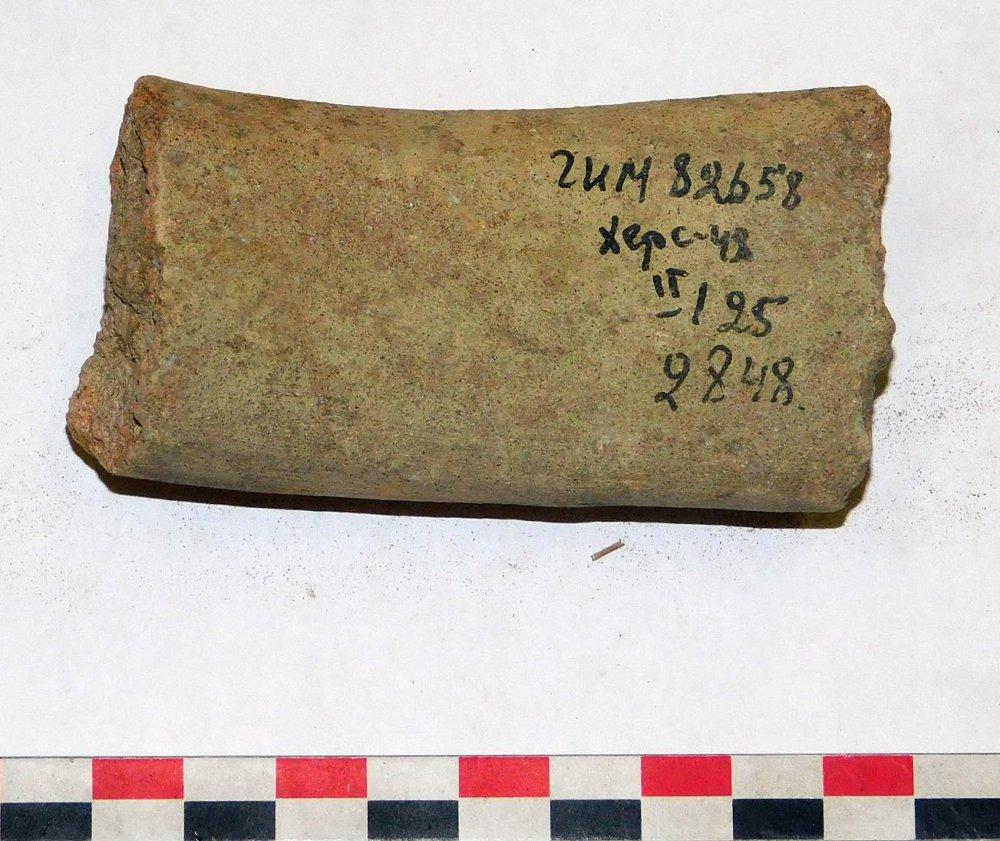 ГИМ 82658
Херс-48
II-125
2848.